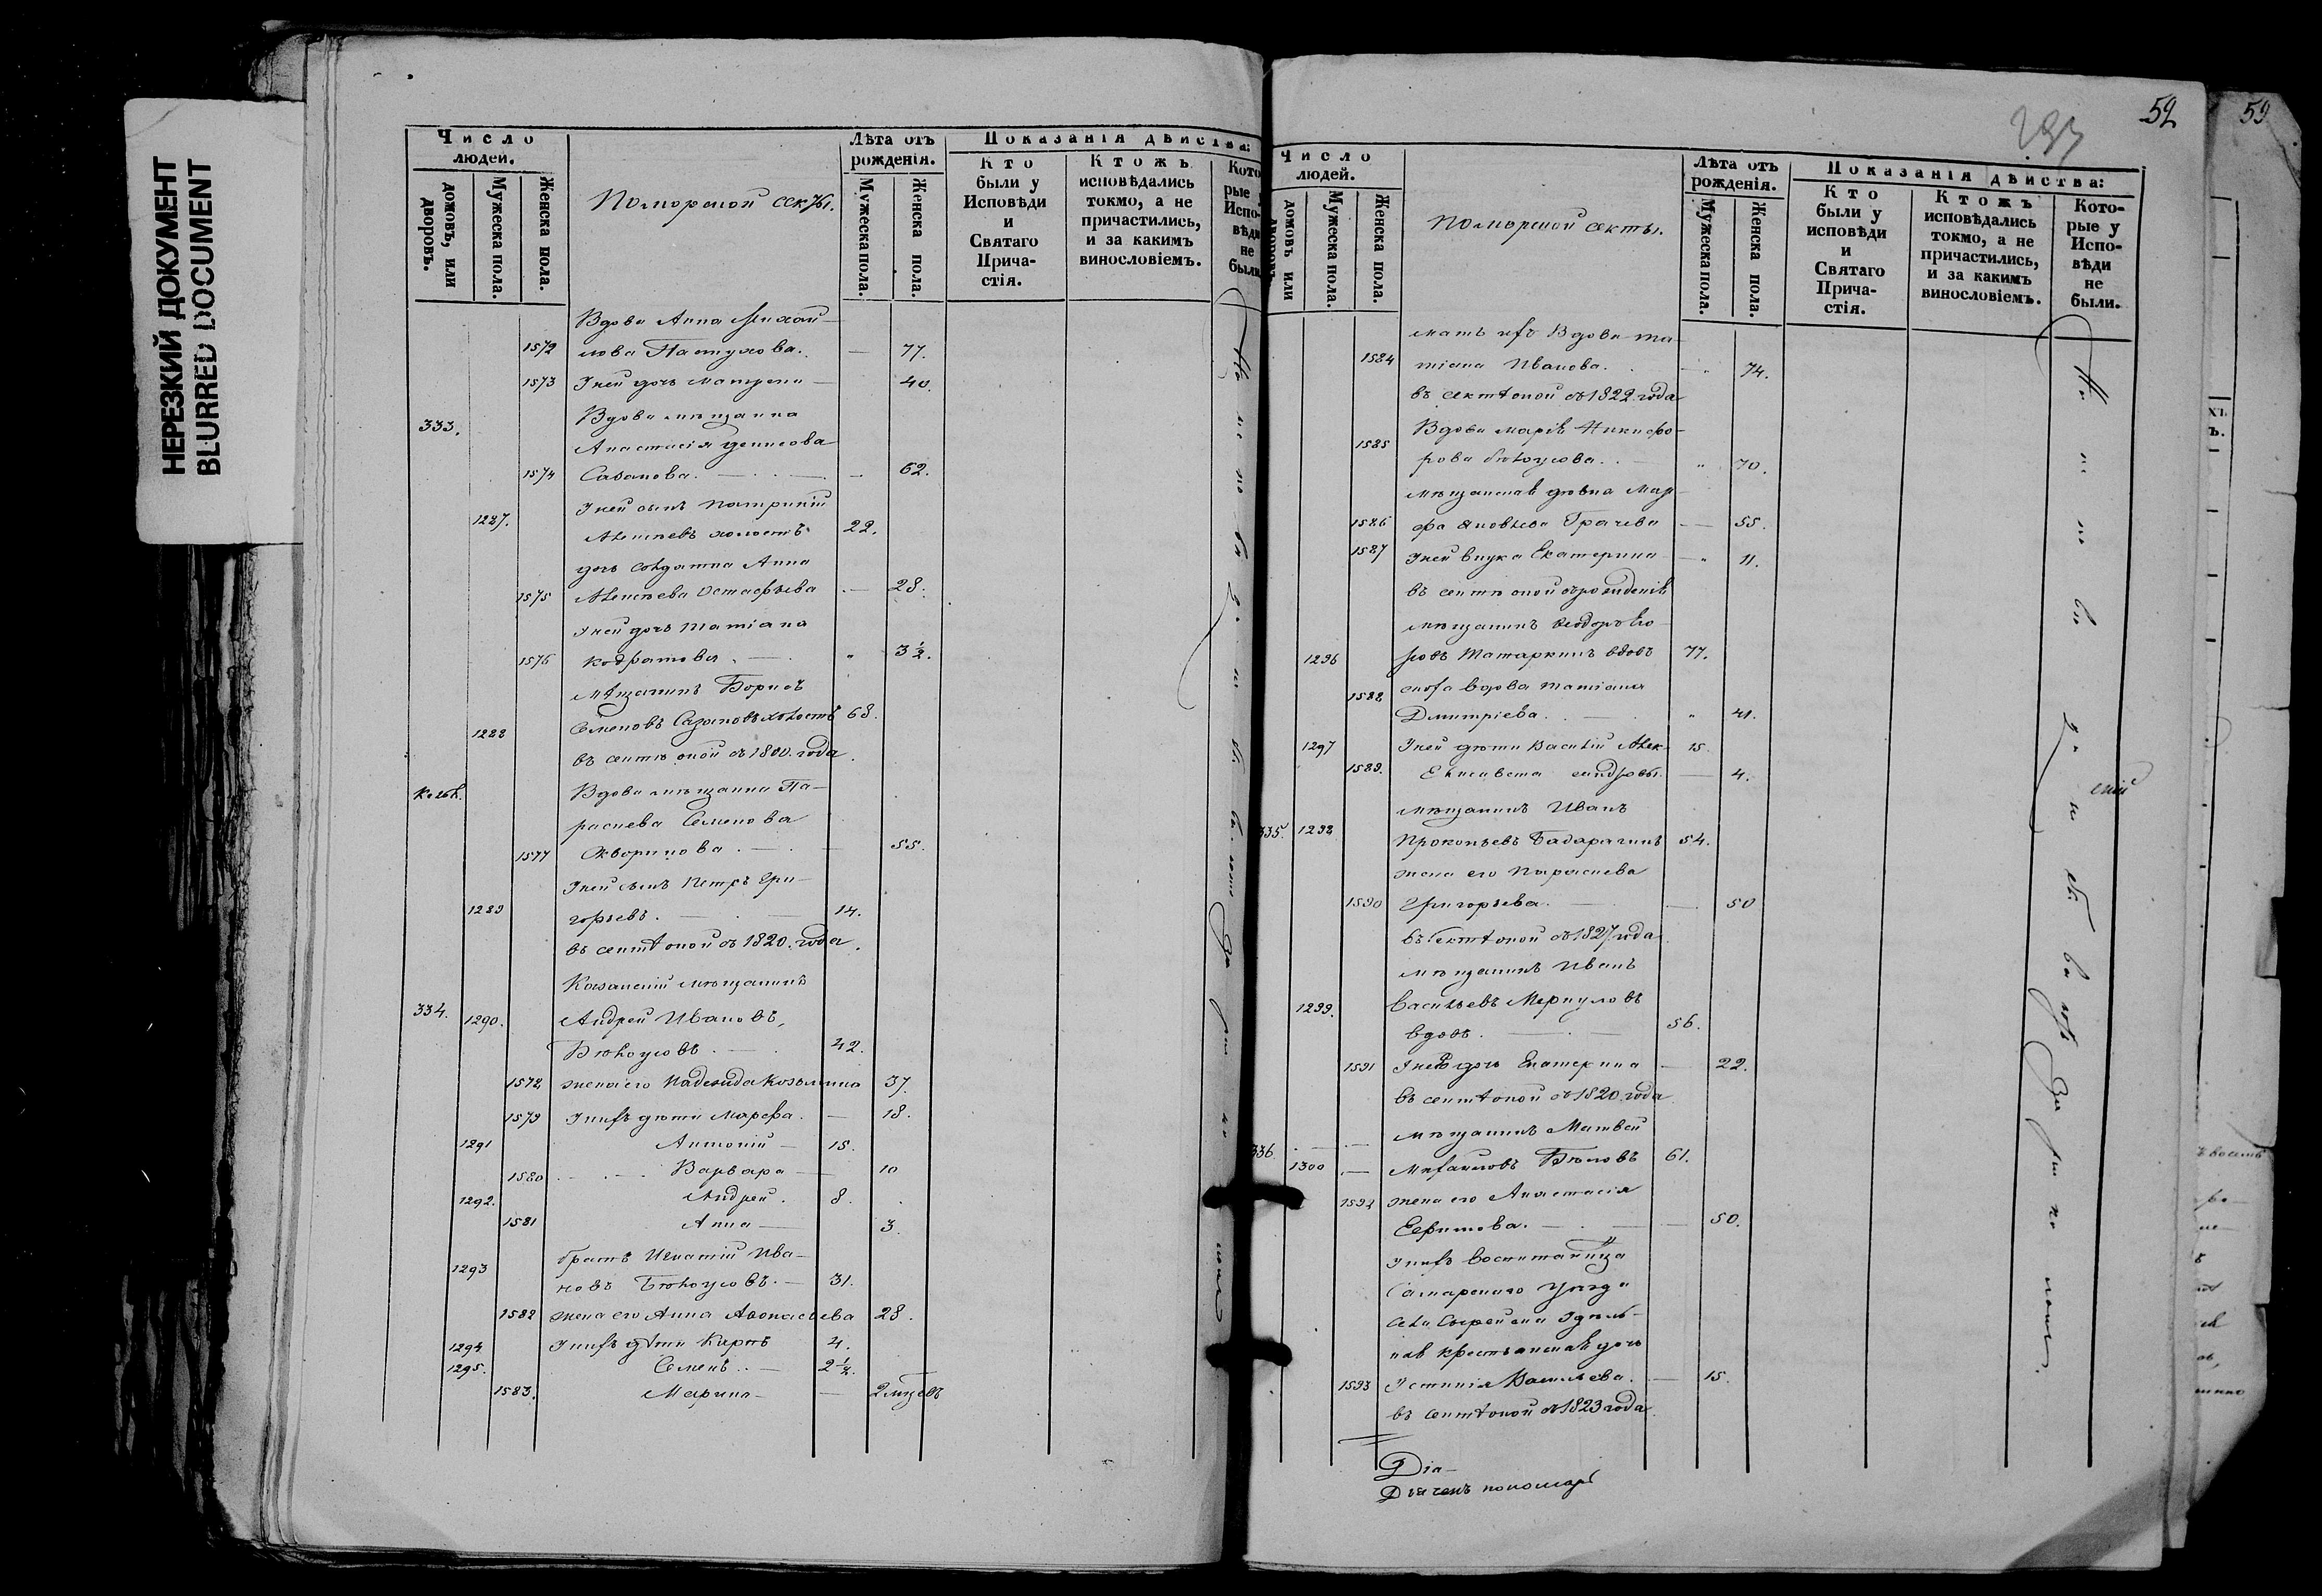 НЕРЕЗКИЙ ДОКУМЕНТ
BLURRED DOCUMENT
Число людей.
домовъ, или дворовъ.
Мужеска пола.
Женска пола.
Поморской секты.
Лѣта отъ рожденія.
Мужеска пола.
Женска пола.
Показанія дѣйства:
Кто были у Исповѣди и Святаго Прича-стія.
Ктожъ исповѣдались токмо, а не причастились, и за какимъ винословіемъ.
Кото рые Испо- вѣди не были
Вдова Анна Михай-
1572 лова Пастухова. — 77.
1573 У ней дочь Матрена — 40.
333. Вдова мѣщанка
Анастасія Денисова
1574 Сазанова. — 62.
У ней сынъ Патрикій
1287. Алексѣевъ холостъ 22.
дочь солдатка Анна
1575 Алексѣева Остафьева — 28.
У ней дочь Татіана
1576 Кодратова. — " 3½.
Мѣщанинъ Борисъ
1288 Семеновъ Сазановъ холостъ 68.
въ сектѣ оной съ 1800. года.
Вдова мѣщанка Па-
раскева Семенова
1577 Скворцова. — 55.
У ней сынъ Петръ Гри-
1289 горьевъ. — 14.
въ сектѣ оной съ 1820. года.
Казанскій мѣщанинъ
334. 1290. Андрей Ивановъ,
Бѣлоусовъ. — 42.
1578 жена его Надежда Козьмина 37.
1579 У нихъ дѣти Марфа. — 18.
1291 Антоній — 15.
1580 Варвара — 10
1292. Андрей. 8.
1581 Анна — 3.
братъ Игнатій Ива-
1293 новъ Бѣлоусовъ. — 31.
1582 жена его Анна Афонасьева 28.
1294 У нихъ дѣти Карпъ 4.
1295. Семенъ.. — 2½.
1583. Марина — 2 мцевъ
52
59
Число людей.
домовъ или дворовъ.
Мужеска пола.
Женска пола.
Поморской секты.
Лѣта отъ рожденія.
Мужеска пола.
Женска пола.
Показанія дѣйства:
Кто были у исповѣди и Святаго Прича-стія.
Ктожъ исповѣдались токмо, а не причастились, и за какимъ винословіемъ.
Кото-рые у Испо-вѣди не были.
мать ихъ Вдова Та-
1584 тіана Иванова. — " 74.
въ сектѣ оной съ 1822 года
Вдова Марія Никифо-
1585 рова Бѣлоусова. . " 70.
мѣщанская дѣвка Мар-
1586 фа Яковлева Грачева — 55.
1587 У ней внука Екатерина — " 11.
въ сектѣ оной отъ рожденія
мѣщанинъ Ѳеодоръ Его-
1296 ровъ Татаркинъ вдовъ 77.
1588 сноха вдова Татіана
Дмитріева. — " 41.
1297 У ней дѣти Василій Алек- 15
1589. Елисавета сандровы. — 4.
мѣщанинъ Иванъ
335. 1298 Прокопьевъ Бадарагинъ 54.
жена его Параскева
1590 Григорьева. — 50
въ сектѣ оной съ 1827 года.
мѣщанинъ Иванъ
1299. Васильевъ Меркуловъ
вдовъ. — 56.
1591 У него дочь Екатерина — 22.
въ сектѣ оной съ 1820. года
мѣщанинъ Матвей
336. 1300 — Михайловъ Бѣловъ 61.
1592 жена его Анастасія
Ефимова. — 50.
У нихъ воспитаница
Самарскаго уѣзда
села удѣль-
ная крестьянская дочь
1593 Устинія Васильева. — 15.
въ сектѣ оной съ 1823 года.
Діа-
Дьячекъ пономарь